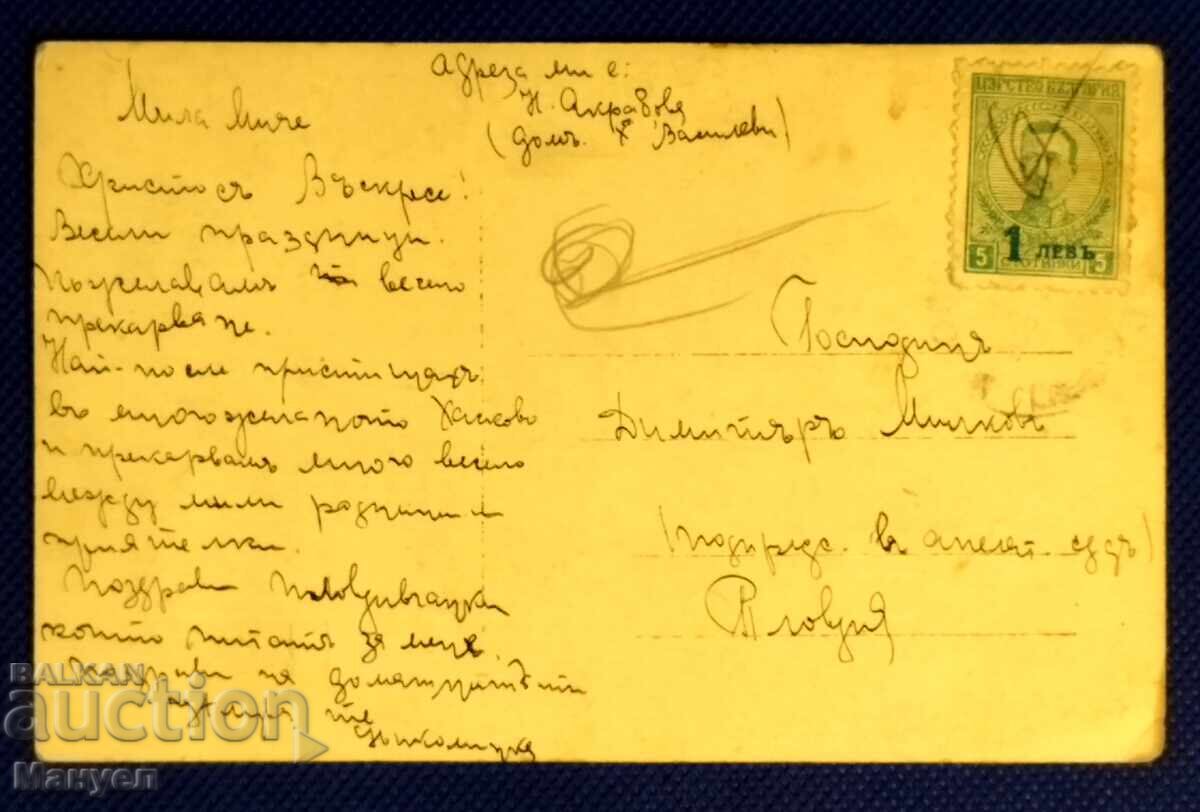 Адреза ми е:
Н. Акрабова
(домъ Х Василеви)
Мила Миче
Христосъ Въскресе!
Весели празници.
Пожелавамъ весело
прекарване.
Най-после пристигнахъ
въ многожеланото Хасково
и прекарвамъ много весело
между мили роднини и
приятелки.
Поздрави Пловдивчанки
които питатъ за мене.
на домашнитѣ ти
те
ЦАРСТВО БЪЛГАРИЯ
1 ЛЕВЪ
5 СТОТИНКИ 5
Господинъ
Димитъръ Мичковъ
(подпредс. въ апелат. сѫдъ)
Пловдивъ
BALKAN
auction
Мануел